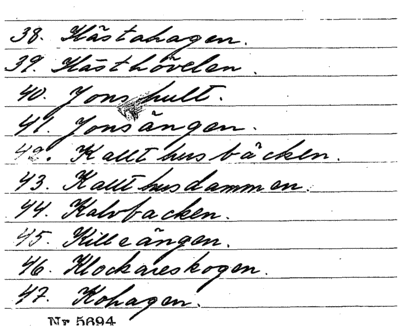 38. Hästahagen.
39. Hästhövelen
40. Jonshult.
41. Jonsängen.
42. Kallthusbäcken.
43. Kallthusdammen.
44. Kalvbacken.
45. Killeängen.
46. Klockareskogen.
47. Kohagen.
Nr 5694